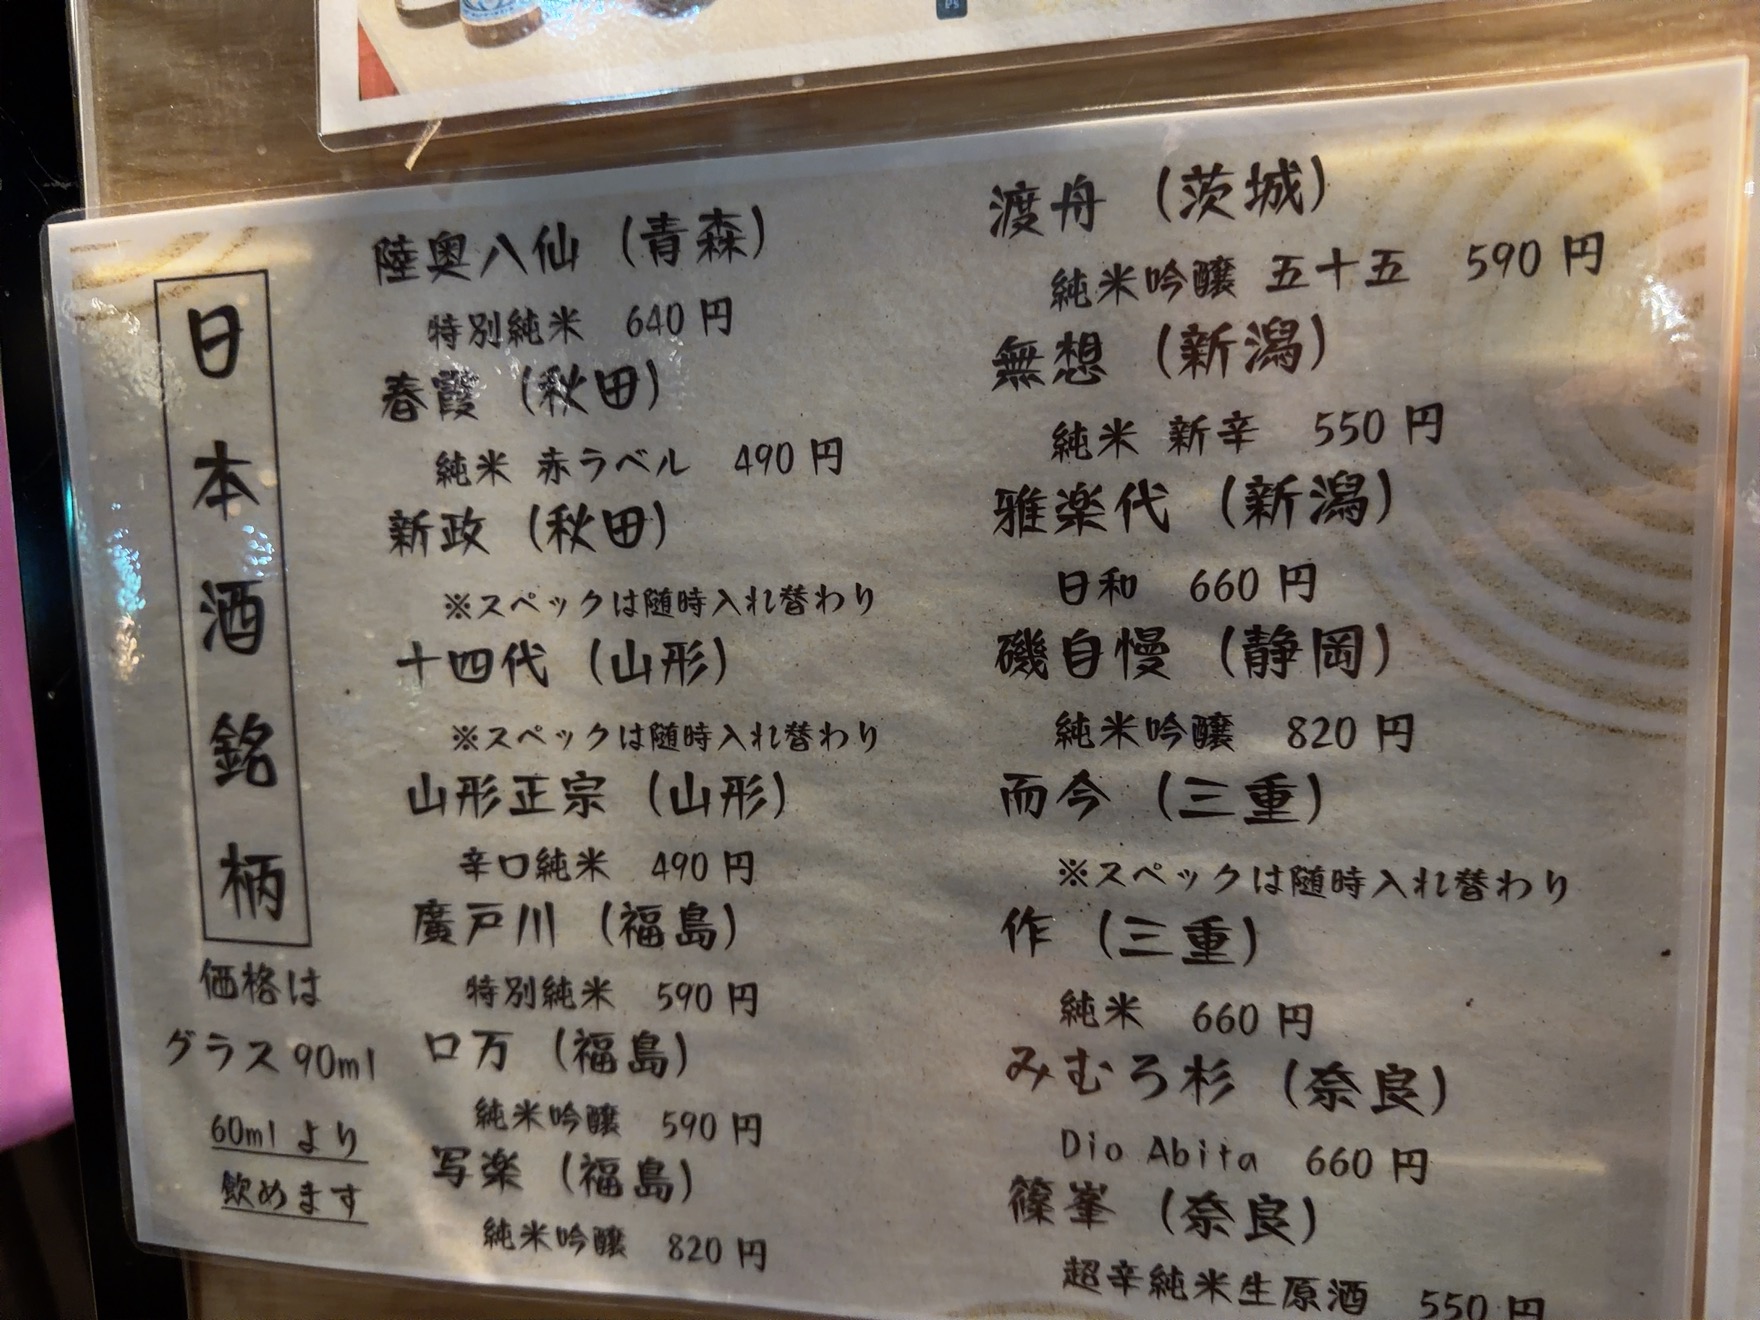 日本酒銘柄
価格は
グラス 90ml
60ml より
飲めます
陸奥八仙 (青森)
特別純米 640 円
春霞 (秋田)
純米 赤ラベル 490 円
新政 (秋田)
※スペックは随時入れ替わり
十四代 (山形)
※スペックは随時入れ替わり
山形正宗 (山形)
辛口純米 490 円
廣戸川 (福島)
特別純米 590 円
ロ万 (福島)
純米吟醸 590 円
写楽 (福島)
純米吟醸 820 円
渡舟 (茨城)
純米吟醸 五十五 590 円
無想 (新潟)
純米 新辛 550 円
雅楽代 (新潟)
日和 660 円
磯自慢 (静岡)
純米吟醸 820 円
而今 (三重)
※スペックは随時入れ替わり
作 (三重)
純米 660 円
みむろ杉 (奈良)
Dio Abita 660 円
篠峯 (奈良)
超辛純米生原酒 550 円